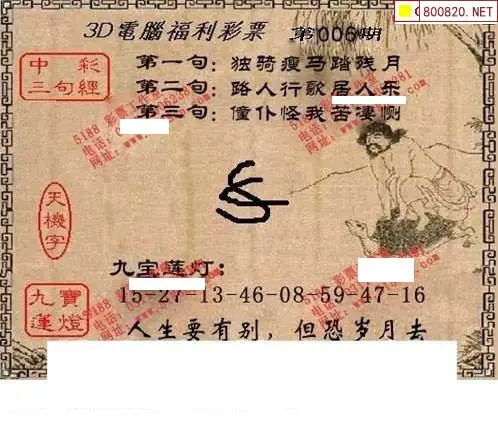 800820.NET
3D電腦福利彩票 第006期
中彩
三句經
第一句：独骑瘦马踏残月
第二句：路人行歌居人乐
第三句：僮仆怪我苦凄恻
天機字
九宝莲灯：
九寶
蓮燈
15-27-13-46-08-59-47-16
人生要有别，但恐岁月去